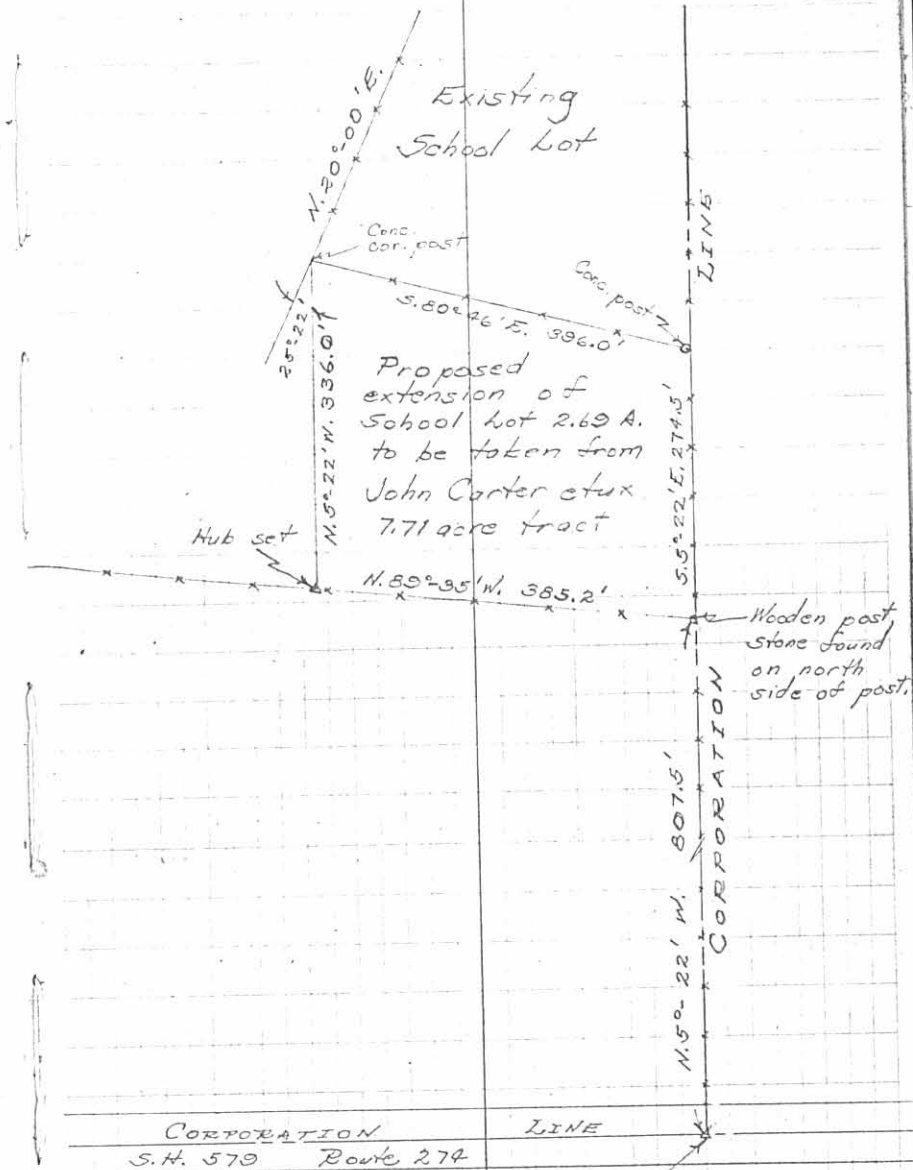 Existing
School Lot
N. 20°-00' E.
LINE
Conc.
cor. post
Conc. post
S. 80°-46' E. 396.0'
25°-22'
N. 5°-22' W. 336.0'
Proposed
extension of
School Lot 2.69 A.
to be taken from
John Carter etux
7.71 acre tract
S. 5°-22' E. 274.5'
Hub set
N. 89°-35' W. 385.2'
Wooden post,
stone found
on north
side of post.
N. 5°-22' W. 807.5'
CORPORATION
CORPORATION LINE
S.H. 579 Route 274